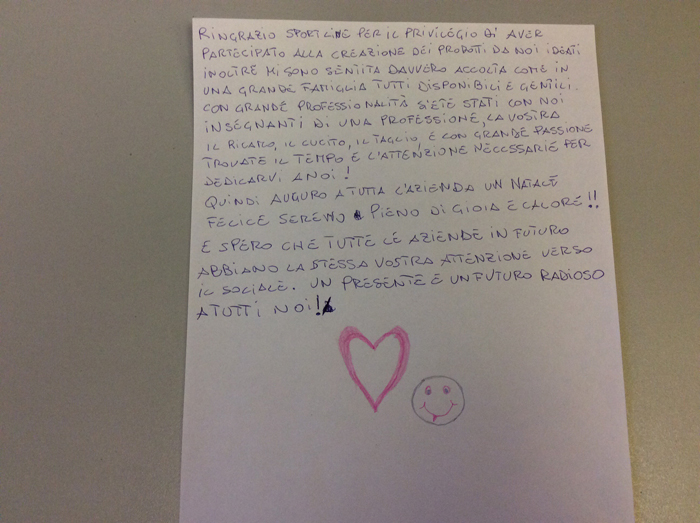 RINGRAZIO SPORTLINE PER IL PRIVILEGIO DI AVER
PARTECIPATO ALLA CREAZIONE DEI PRODOTTI DA NOI IDEATI
INOLTRE MI SONO SENTITA DAVVERO ACCOLTA COME IN
UNA GRANDE FAMIGLIA TUTTI DISPONIBILI E GENTILI.
CON GRANDE PROFESSIONALITÀ SIETE STATI CON NOI
INSEGNANTI DI UNA PROFESSIONE, LA VOSTRA
IL RICAMO, IL CUCITO, IL TAGLIO, E CON GRANDE PASSIONE
TROVATE IL TEMPO E L'ATTENZIONE NECESSARIE PER
DEDICARVI A NOI!
QUINDI AUGURO A TUTTA L'AZIENDA UN NATALE
FELICE SERENO PIENO DI GIOIA E CALORE!!
E SPERO CHE TUTTE LE AZIENDE IN FUTURO
ABBIANO LA STESSA VOSTRA ATTENZIONE VERSO
IL SOCIALE. UN PRESENTE E UN FUTURO RADIOSO
A TUTTI NOI!